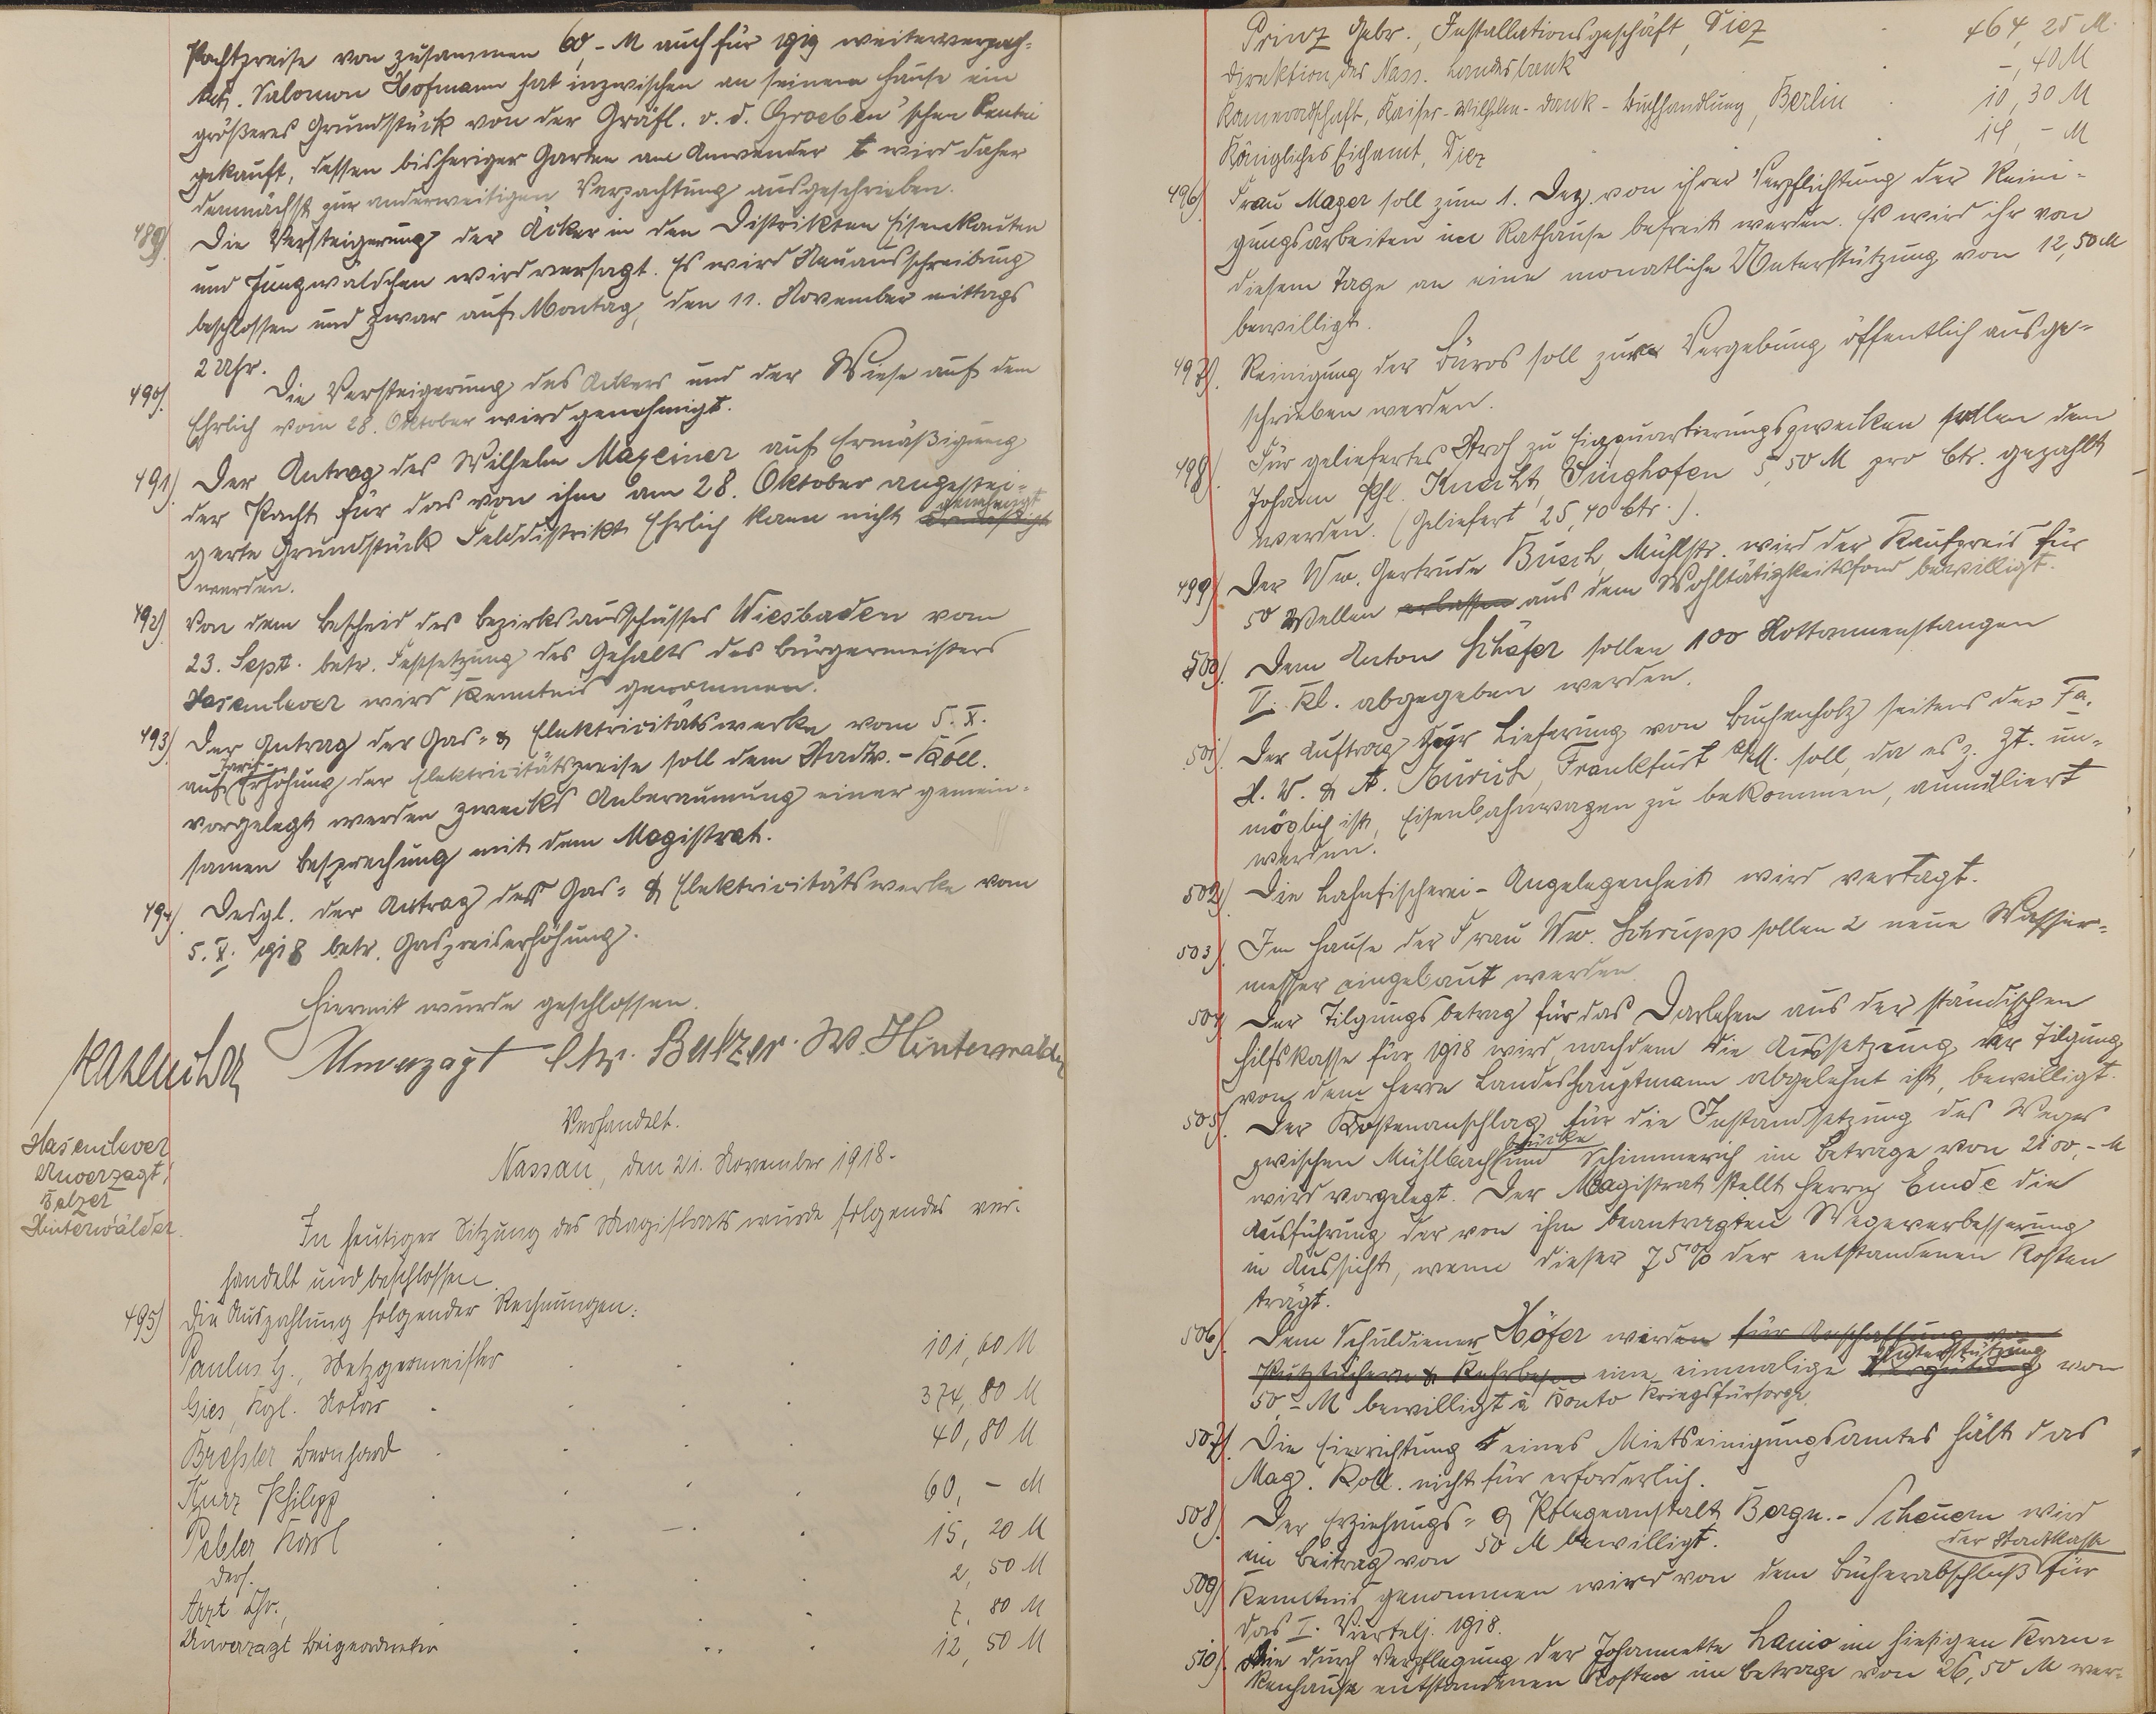 Pachtpreise von zusammen 60,- M auch für 1919 weiterverpach-
tet. Salomon Hofmann hat inzwischen an seinem Hause ein
größeres Grundstück von der Gräfl. v. d. Groeben'schen Rentei
gekauft, dessen bisheriger Garten am Anwender wird daher
demnächst zur anderweitigen Verpachtung ausgeschrieben.
489) Die Versteigerung der Äcker in den Distrikten Eisenkauten
und Jungwäldchen wird versagt. Es wird Neuausschreibung
beschlossen und zwar auf Montag, den 11. November mittags
2 Uhr.
490). Die Versteigerung des Ackers und der Wiese auf dem
Ehrlich vom 28. Oktober wird genehmigt.
491). Der Antrag des Wilhelm Maxeiner auf Ermäßigung
der Pacht für das von ihm am 28. Oktober angestei-
gerte Grundstück Felddistrikt Ehrlich kann nicht genehmigt
werden.
492) Von dem Bescheid des Bezirksausschusses Wiesbaden vom
23. Sept. betr. Festsetzung des Gehalts des Bürgermeisters
Hasenclever wird Kenntnis genommen.
493) Der Antrag der Gas- & Elektricitätswerke vom 5. X.
auf Tarif-Erhöhung der Elektricitätspreise soll dem Stadtv.-Koll.
vorgelegt werden zwecks Anberaumung einer gemein-
samen Besprechung mit dem Magistrat.
494) Desgl. der Antrag des Gas- & Elektricitätswerke vom
5. X. 1918 betr. Gaspreiserhöhung.
Hiermit wurde geschlossen.
Unverzagt Chr. Balzer. W. Hinterwälder
Verhandelt.
Hasenclever
Unverzagt,
Balzer
Hinterwälder.
Nassau, den 21. November 1918.
In heutiger Sitzung des Magistrats wurde folgendes ver-
handelt und beschlossen.
495) Die Auszahlung folgender Rechnungen:
Paulus H., Metzgermeister 101,60 M
Gies, Kgl. Notar 374,80 M
Bressler Bernhard 40,80 M
Kurz Philipp 60,- M
Pebler Karl 15,20 M
Ders. 2,50 M
Arzt Chr., 7,80 M
Unverzagt Beigeordneter 12,50 M
Prinz Gebr., Installationsgeschäft, Diez 464,25 M.
Direktion der Nass. Landesbank -,40 M
Kameradschaft, Kaiser-Wilhelm-Dank-Buchhandlung, Berlin 10,30 M
Königliches Eichamt, Diez 14,- M
496) Frau Mager soll zum 1. Dez. von ihrer Verpflichtung der Reini-
gungsarbeiten im Rathause befreit werden. Es wird ihr von
diesem Tage an eine monatliche Unterstützung von 12,50 M
bewilligt.
497). Reinigung der Büros soll zur Vergebung öffentlich ausge-
schrieben werden.
498). Für geliefertes Stroh zu Einquartierungszwecken sollen dem
Johann Phl. Knecht, Singhofen 5,50 M pro Ctr. gezahlt
werden. (Geliefert 25,40 Ctr.).
499) Der Ww. Gertrude Busch, Mühlstr. wird der Kaufpreis für
50 Wellen erlassen aus dem Wohltätigkeitsfond bewilligt.
500). Dem Anton Schäfer sollen 100 Rottannenstangen
V. Kl. abgegeben werden.
501). Der Auftrag zur Lieferung von Buchenholz seitens der Fa.
H. W. & A. Frankfurt a/M. soll, da es z. Zt. un-
möglich ist, Eisenbahnwagen zu bekommen, annulliert
werden.
502) Die Lahnfischerei-Angelegenheit wird vertagt.
503). Im Hause der Frau Ww. Schrupp sollen 2 neue Wasser-
messer eingebaut werden.
504) Der Tilgungsbetrag für das Darlehen aus der ständischen
Hilfskasse für 1918 wird, nachdem die Aussetzung der Tilgung
von dem Herrn Landeshauptmann abgelehnt ist, bewilligt.
505). Der Kostenanschlag für die Instandsetzung des Weges
zwischen Mühlbachbrücke und Schimmerich im Betrage von 2100,- M
wird vorgelegt. Der Magistrat stellt Herrn Emde die
Ausführung der von ihm beantragten Wegeverbesserung
in Aussicht, wenn dieser 75% der entstandenen Kosten
trägt.
506) Dem Schuldiener Höfer werden für Anschaffung von
Putztüchern & Kehrbesen eine einmalige Unterstützung von
50,- M bewilligt à Konto Kriegsfürsorge.
507). Die Einrichtung eines Mietseinigungsamtes hält das
Mag. Koll. nicht für erforderlich.
508). Der Erziehungs- & Pflegeanstalt Bergn.-Scheuern wird
ein Beitrag von 50 M bewilligt.
509) Kenntnis genommen wird von dem Bücherabschluß der Stadtkasse für
das I. Viertelj. 1918.
510). Die durch Verpflegung der Johannette Lanio im hiesigen Kran-
kenhause entstandenen Kosten im Betrage von 26,50 M wer-